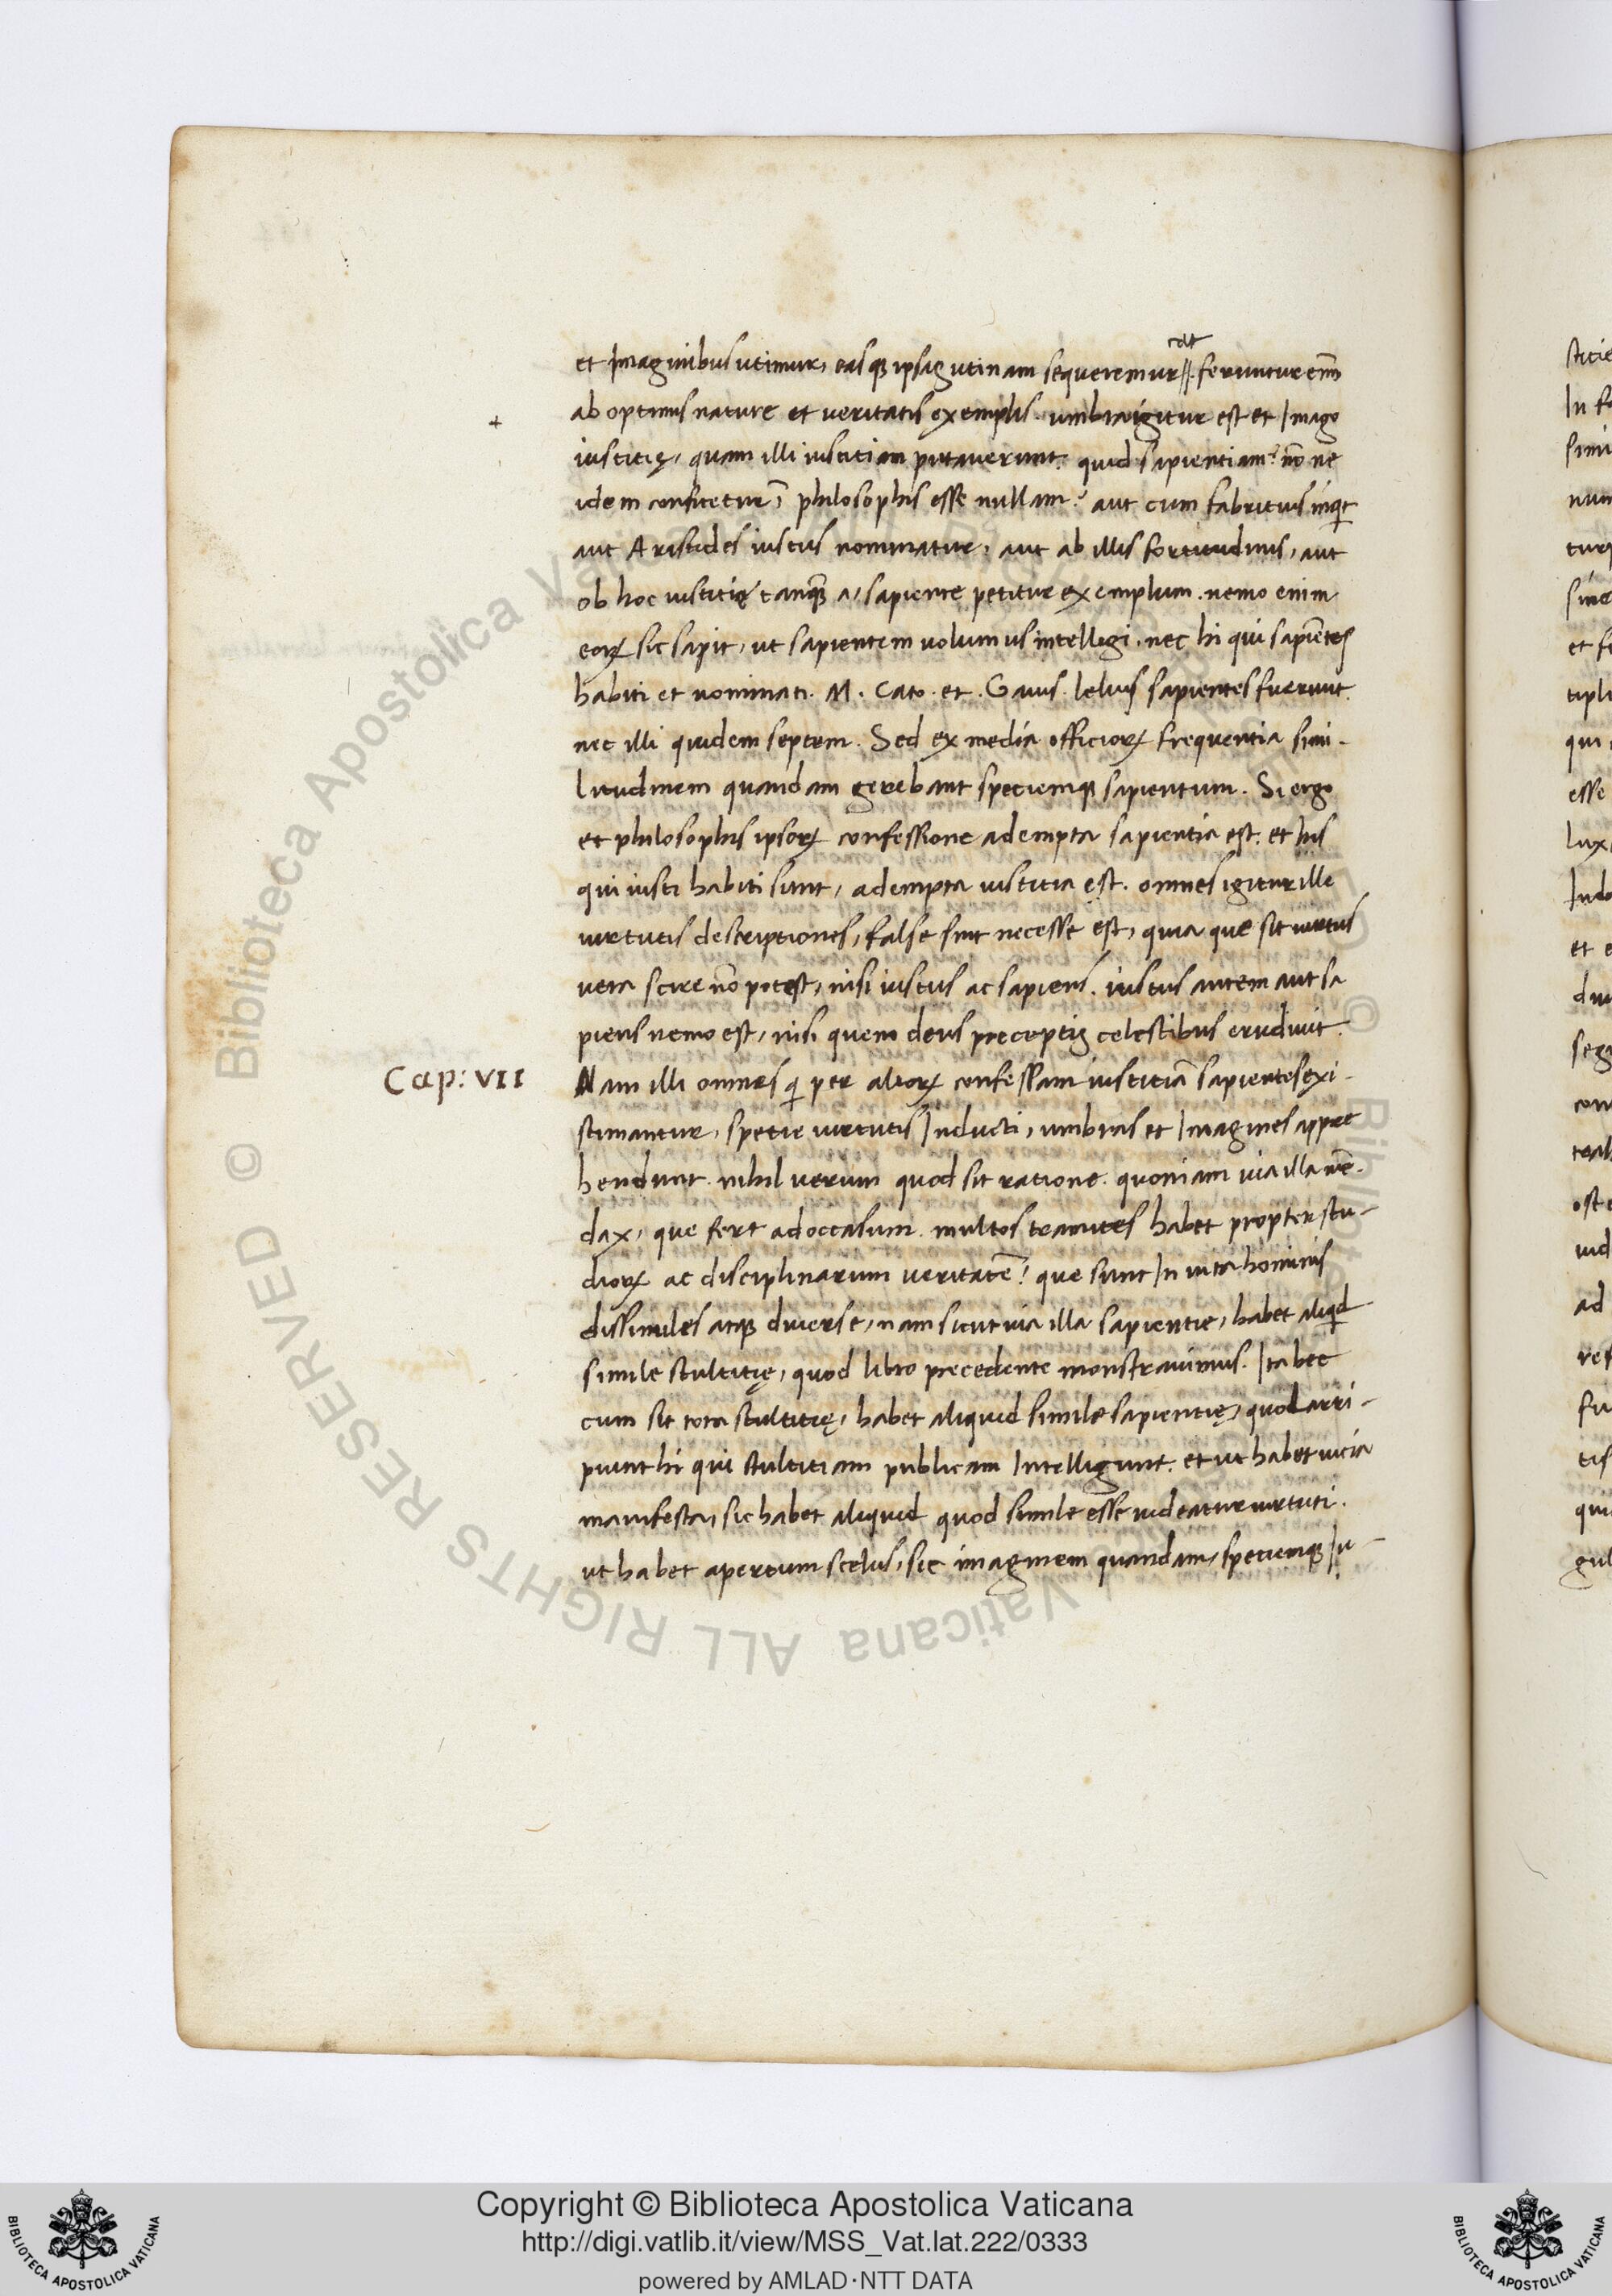 et Imaginibus utimur, easq; ipsas utinam sequeremur//. feruntur eni͞m
ab optimis nature et veritatis exemplis. umbra igitur est et Imago
iustitię, quam illi iustitiam putaverunt. quid sapientiam? no͞ ne
idem confitetur, philosophis esse nullam? aut cum fabritius inqt
aut Aristides iustus nominatur, aut ab illis fortitudinis, aut
ob hoc iustitię tanq͞ a, sapiente petitur exemplum. nemo enim
eoꝝ sic sapit, ut sapientem volumus intellegi. nec hi qui sapie͞tes
habiti et nominati. M. Cato. et. Gaius. lelius sapientes fuerunt.
nec illi quidem septem. Sed ex media officioꝝ frequentia simi-
litudinem quandam gerebant speciemq; sapientum. Si ergo
et philosophis ipsoꝝ confessione adempta sapientia est. et his
qui iusti habiti sunt, adempta iustitia est. omnes igitur ille
virtutis descriptiones, false sint necesse est, quia que sit virtus
vera scire no͞ potest, nisi iustus ac sapiens. iustus autem aut sa
piens nemo est, nisi quem deus preceptis celestibus erudivit.
Cap: VII
Nam illi omnes q per alioꝝ confessam iustitia͞ sapientes exi-
stimantur, spetie virtutis Inducti, umbras et Imagines appre
hendunt. nihil verum quod sit ratione. quoniam via illa me͞-
dax, que fert ad occasum. multos tramites habet propter stu-
dioꝝ ac disciplinarum veritate͞! que sunt In vita hominis
dissimiles atq; diverse, nam sicut via illa sapientie, habet aliqd
simile stultitię, quod libro precedente monstravimus. Ita hec
cum sit tota stultitię, habet aliquid simile sapientię, quod arri-
piunt hi qui stultitiam publicam Intelligunt. et ut habet vicia
manifesta, sic habet aliquid quod simile esse videatur virtuti.
ut habet apertum scelus, sic imaginem quandam, speciemq; Iu-
Copyright © Biblioteca Apostolica Vaticana
http://digi.vatlib.it/view/MSS_Vat.lat.222/0333
powered by AMLAD·NTT DATA